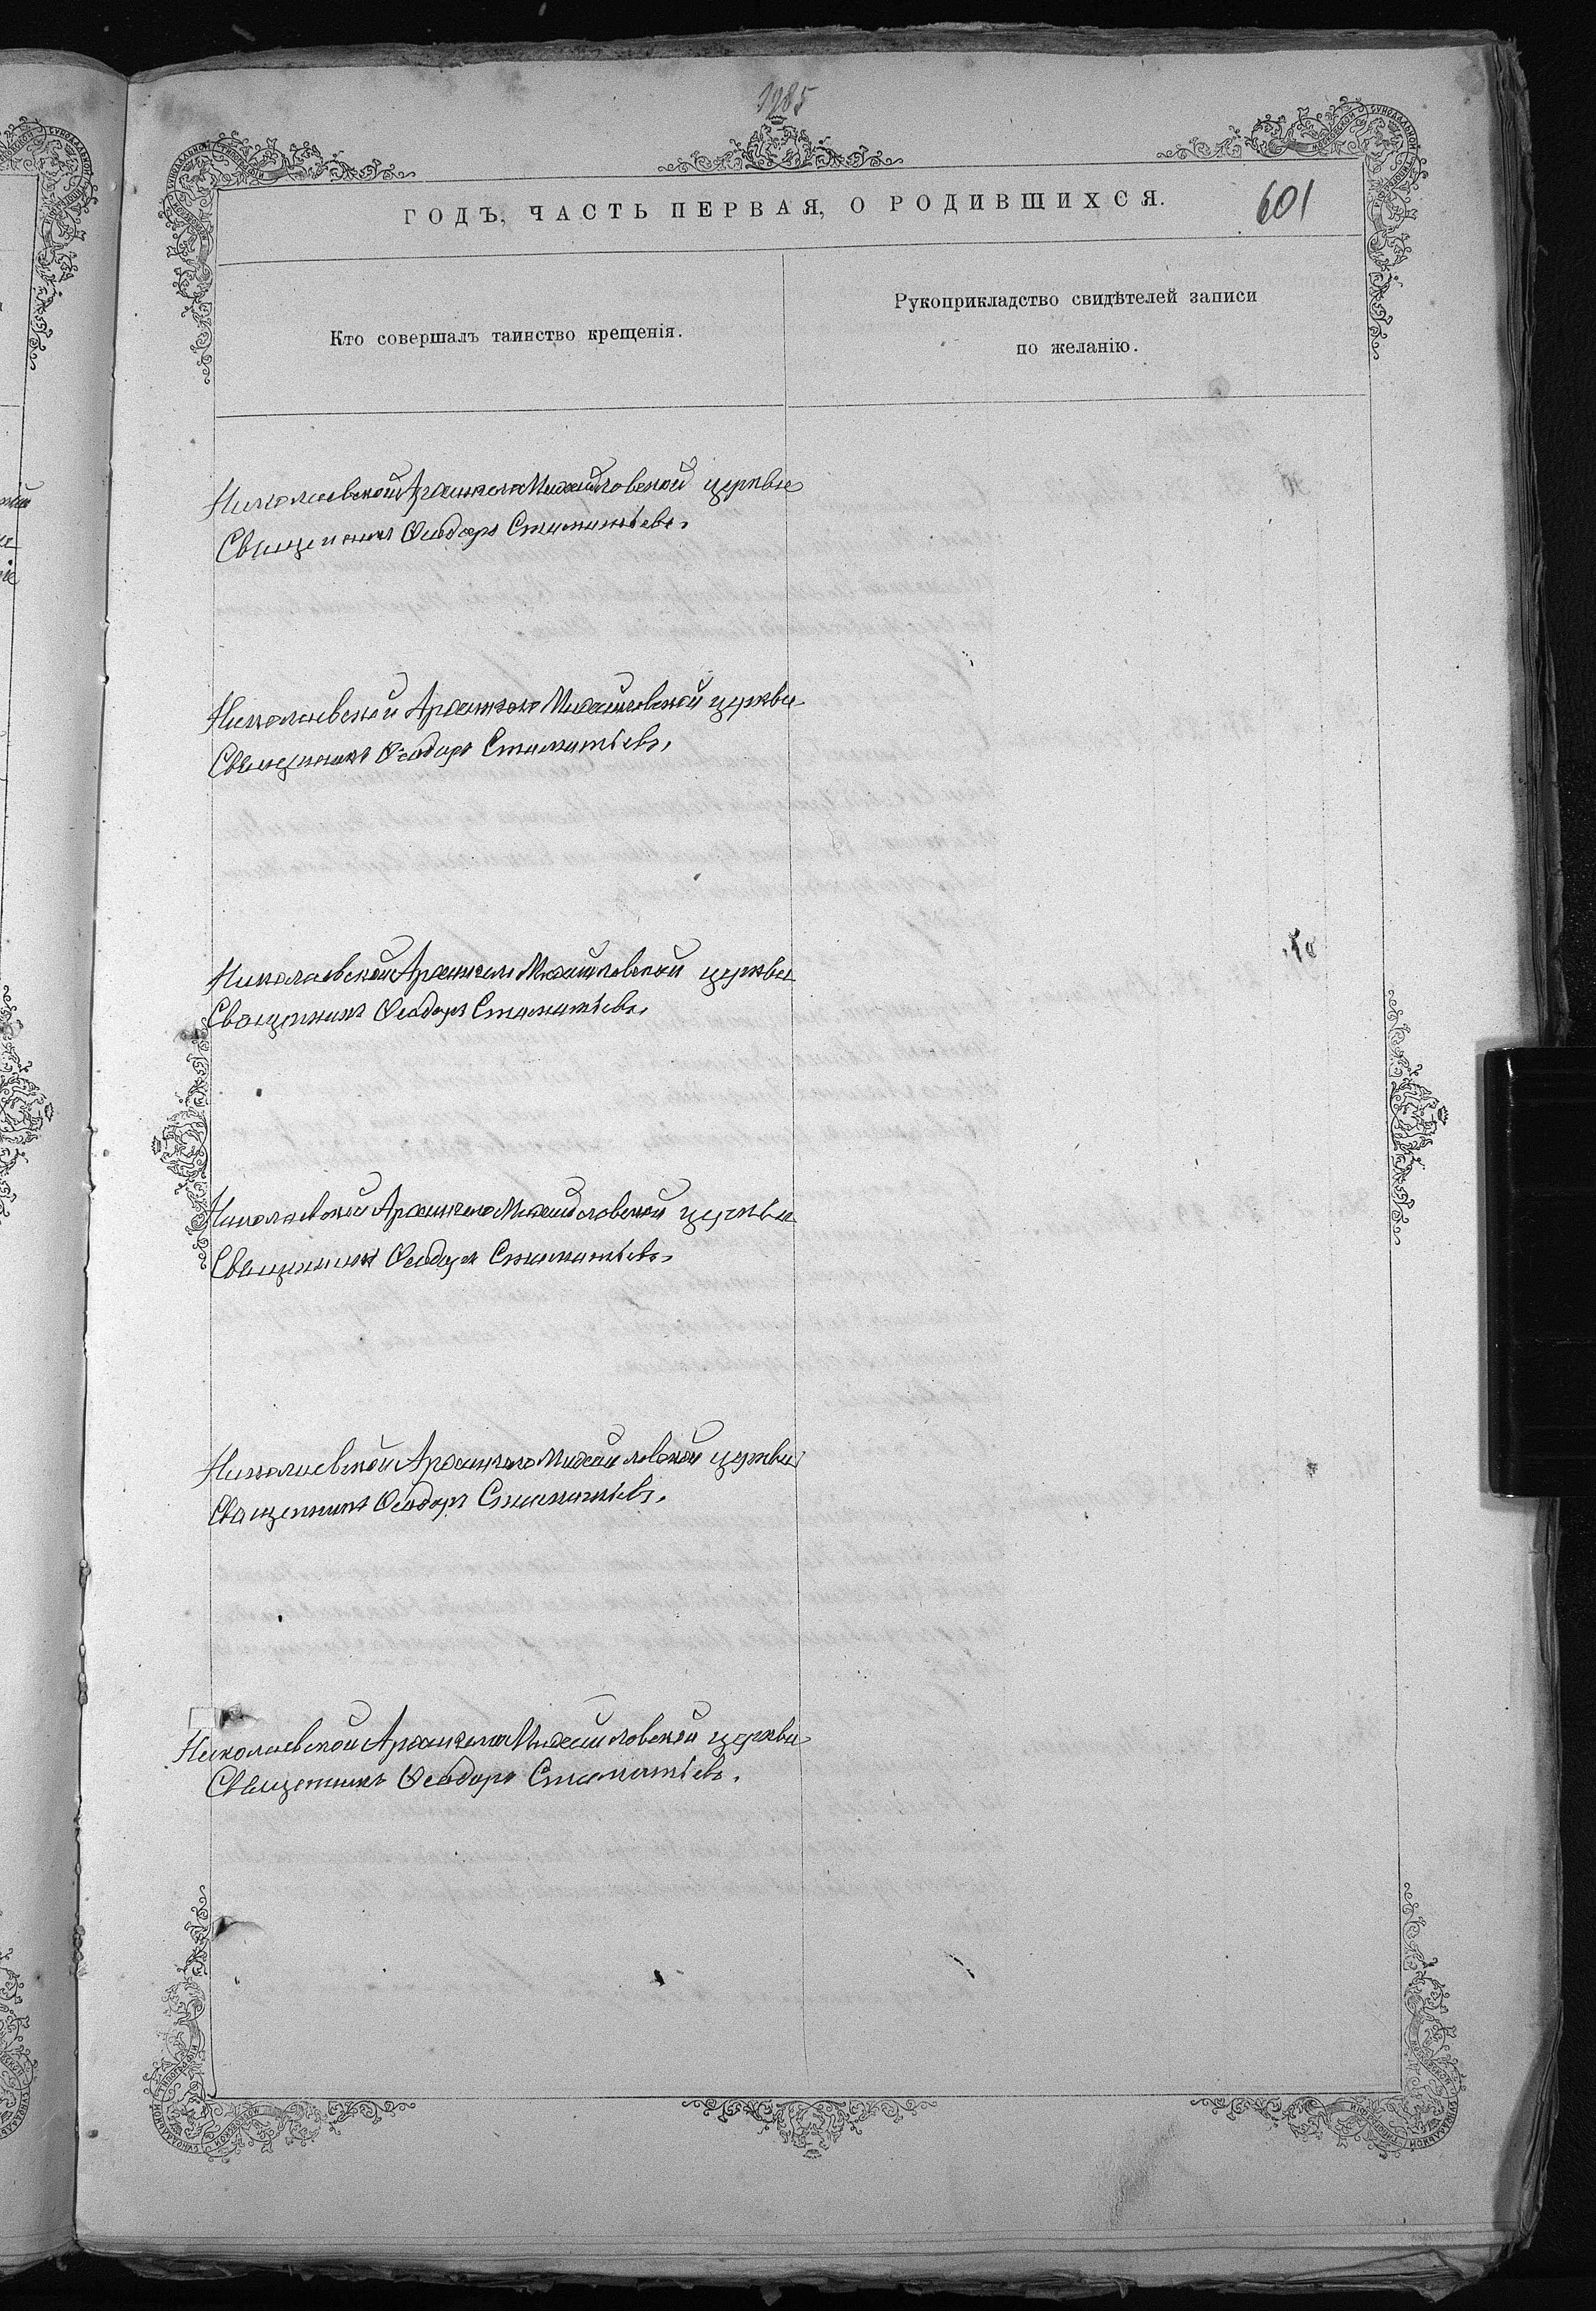 1285
ГОДЪ, ЧАСТЬ ПЕРВАЯ, О РОДИВШИХСЯ.
601
Кто совершалъ таинство крещенія.
Рукоприкладство свидѣтелей записи
по желанію.
Николаевской Архангело Михайловской церкви
Священникъ Ѳеодоръ Стаматьевъ.
Николаевской Архангело Михайловской церкви
Священникъ Ѳеодоръ Стаматьевъ.
Николаевской Архангело Михайловской церкви
Священникъ Ѳеодоръ Стаматьевъ.
Николаевской Архангело Михайловской церкви
Священникъ Ѳеодоръ Стаматьевъ.
Николаевской Архангело Михайловской церкви
Священникъ Ѳеодоръ Стаматьевъ.
Николаевской Архангело Михайловской церкви
Священникъ Ѳеодоръ Стаматьевъ.